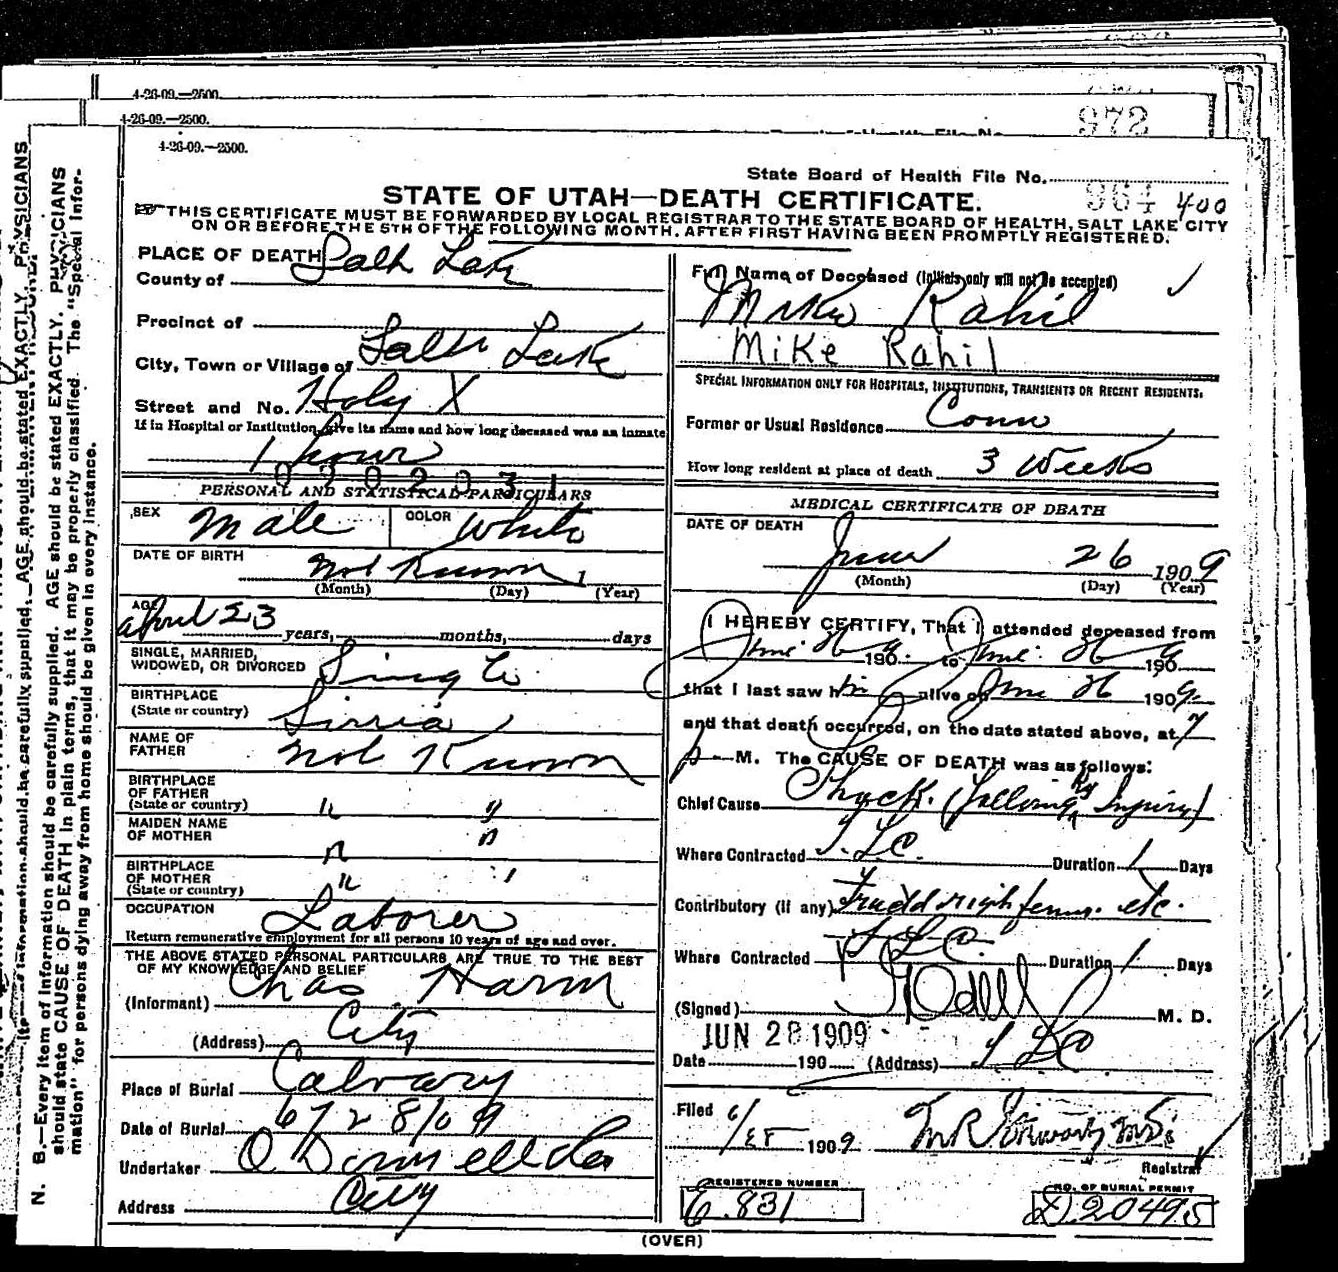 4-26-09.—2500.
4-26-09.—2500.
972
4-26-09.—2500.
State Board of Health File No. 964 400
STATE OF UTAH—DEATH CERTIFICATE.
THIS CERTIFICATE MUST BE FORWARDED BY LOCAL REGISTRAR TO THE STATE BOARD OF HEALTH, SALT LAKE CITY
ON OR BEFORE THE 5TH OF THE FOLLOWING MONTH, AFTER FIRST HAVING BEEN PROMPTLY REGISTERED.
PLACE OF DEATH
County of Salt Lake
Precinct of
City, Town or Village of Salt Lake
Street and No. Holy X
If in Hospital or Institution, give its name and how long deceased was an inmate
1 hour
020231
PERSONAL AND STATISTICAL PARTICULARS
SEX Male COLOR White
DATE OF BIRTH Not Known 1
(Month) (Day) (Year)
AGE 23 years, months, days
SINGLE, MARRIED,
WIDOWED, OR DIVORCED Single
BIRTHPLACE
(State or country) Sirria
NAME OF
FATHER Not Known
BIRTHPLACE
OF FATHER
(State or country) " "
MAIDEN NAME
OF MOTHER " "
BIRTHPLACE
OF MOTHER
(State or country) " "
OCCUPATION Laborer
Return remunerative employment for all persons 10 years of age and over.
THE ABOVE STATED PERSONAL PARTICULARS ARE TRUE TO THE BEST
OF MY KNOWLEDGE AND BELIEF
(Informant) Chas Harm
(Address) City
Place of Burial Calvary
Date of Burial 6/28/09
Undertaker O Donnell & Co
Address City
Full Name of Deceased (Initials only will not be accepted)
Mike Rahil
Mike Rahil
SPECIAL INFORMATION ONLY FOR HOSPITALS, INSTITUTIONS, TRANSIENTS OR RECENT RESIDENTS.
Former or Usual Residence Conn
How long resident at place of death 3 Weeks
MEDICAL CERTIFICATE OF DEATH
DATE OF DEATH
June 26 1909
(Month) (Day) (Year)
I HEREBY CERTIFY, That I attended deceased from
June 26 1909 to June 26 1909
that I last saw him alive on June 26 1909.
and that death occurred, on the date stated above, at 7
p M. The CAUSE OF DEATH was as follows:
Chief Cause Shock (following Ry Injury)
Where Contracted S.L.C. Duration 1 Days
Contributory (if any) right femur etc.
Where Contracted S L C Duration 1 Days
(Signed) Odell M. D.
JUN 28 1909
Date 190 (Address) S L C
Filed 6/28 1909 M.D.
Registrar
REGISTERED NUMBER
E.831
NO. OF BURIAL PERMIT
D.20495
(OVER)
N. B.—Every item of information should be carefully supplied. AGE should be stated EXACTLY. PHYSICIANS
should state CAUSE OF DEATH in plain terms, that it may be properly classified. The "Special Infor-
mation" for persons dying away from home should be given in every instance.